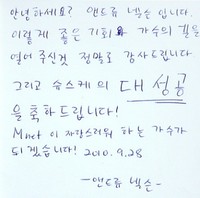 안녕하세요? 앤드류 넬슨 입니다.
이렇게 좋은 기회와 가수의 길을
열어 주신것 정말로 감사드립니다
그리고 슈스케의 대성공
을 축하드립니다!
Mnet 이 자랑스러워 하는 가수가
되겠습니다! 2010.9.28
-앤드류 넬슨-